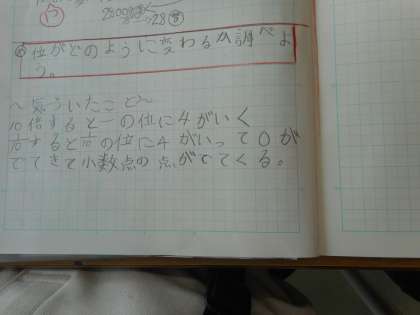 2800
28
め 位がどのように変わるか調べよ
う。
〜気づいたこと〜
10倍すると一の位に4がいく
1/10すると1/10の位に4がいって0が
でてきて小数点の点がでてくる。